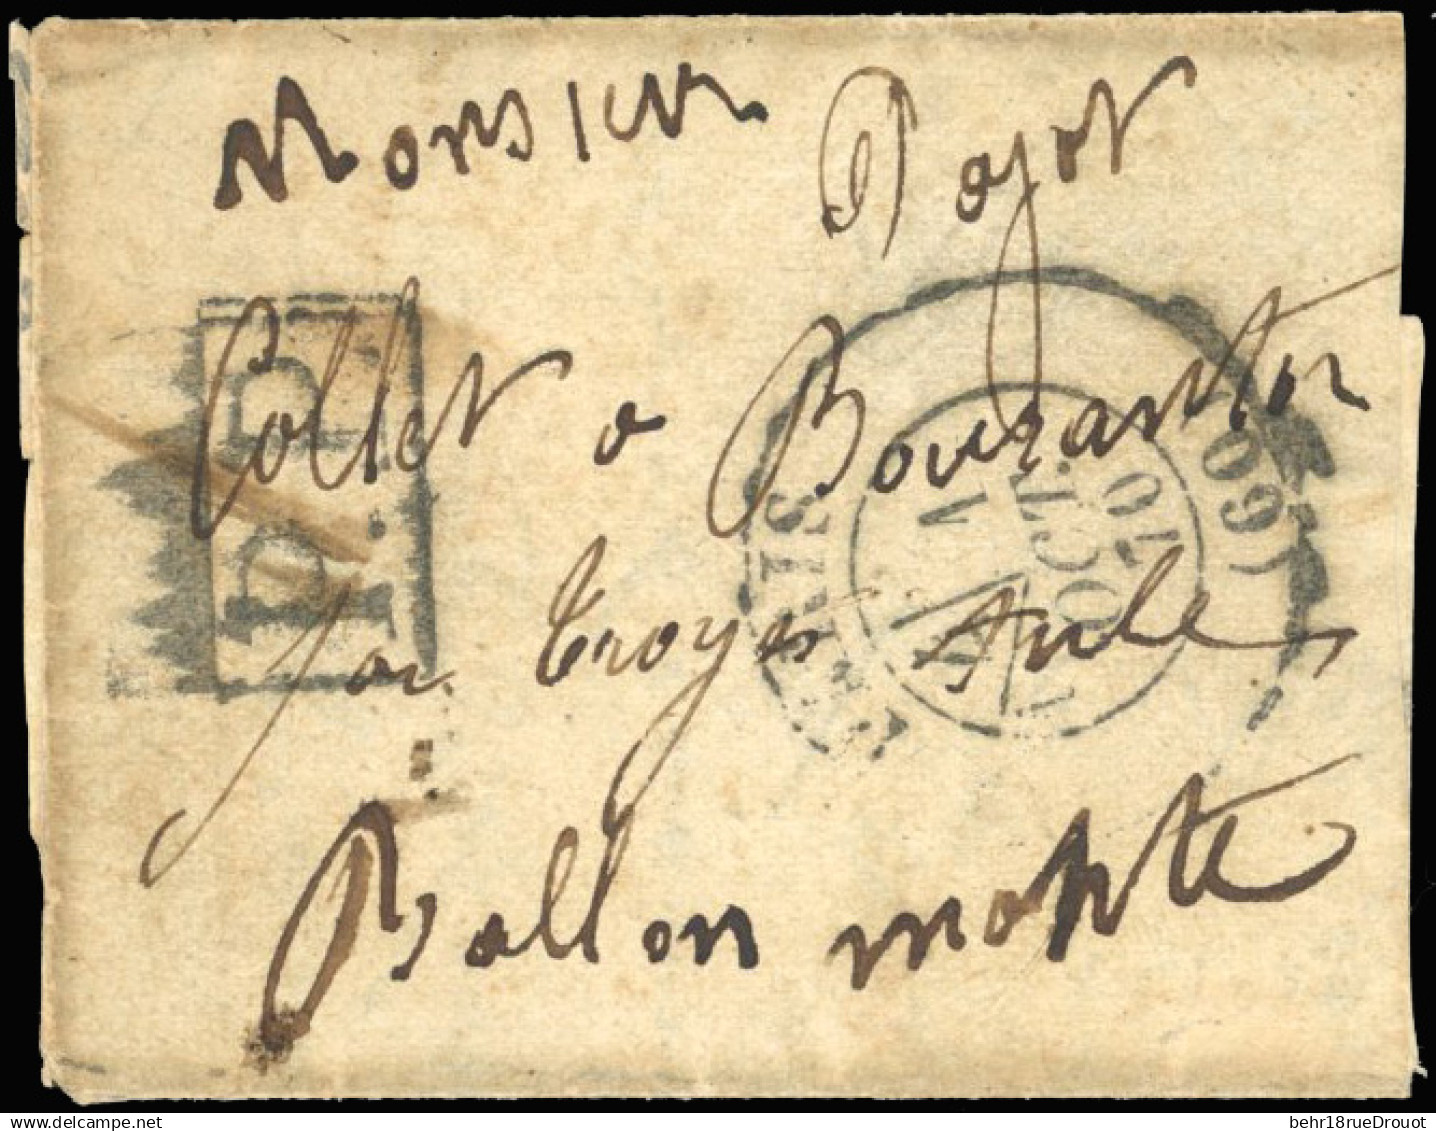 Monsieur Dojot
Collet a Bouranton
par Troyes Aube
Ballon monté
P.P.
PARIS
(60)
1
OCT.
70
behr18rueDrouot